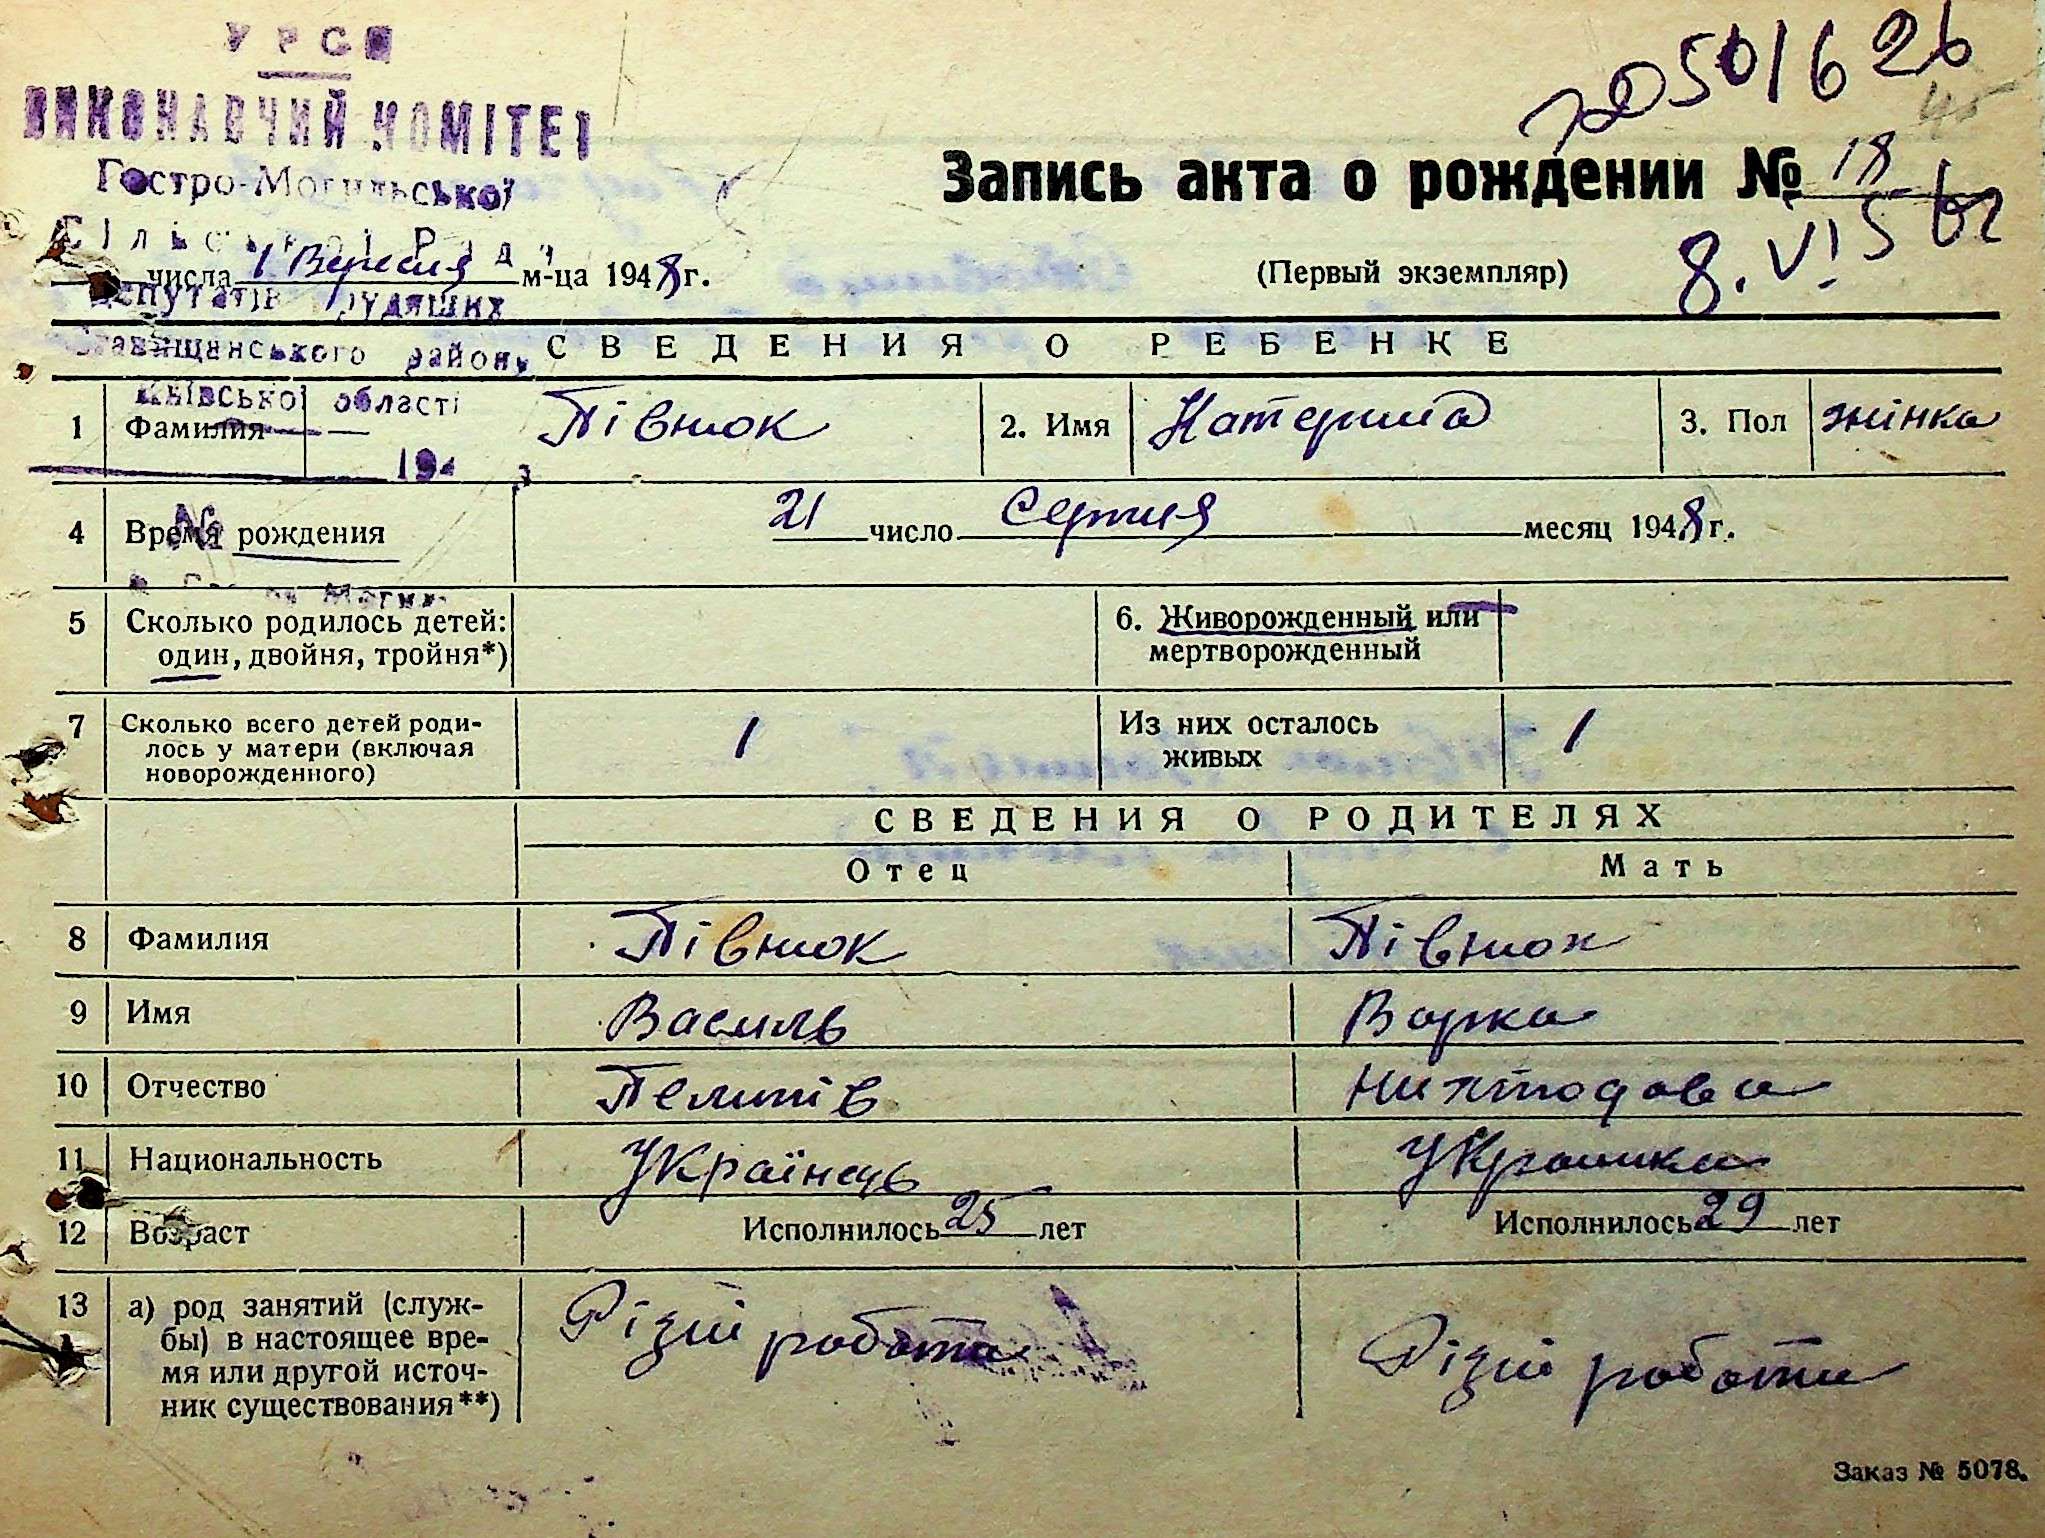 УРСР
ВИКОНАВЧИЙ КОМІТЕТ
Гостро-Могильської
Сільської Ради
депутатів трудящих
Ставищанського району
Київської області
194
№
501626
45
Запись акта о рождении № 18
8. VI 5
числа 1 Вересня м-ца 1948 г.
(Первый экземпляр)
СВЕДЕНИЯ О РЕБЕНКЕ
1 Фамилия Півнюк 2. Имя Катерина 3. Пол жінка
4 Время рождения 21 число Серпня месяц 1948 г.
5 Сколько родилось детей: 6. Живорожденный или
один, двойня, тройня*) мертворожденный
7 Сколько всего детей роди- 1 Из них осталось 1
лось у матери (включая живых
новорожденного)
СВЕДЕНИЯ О РОДИТЕЛЯХ
Отец Мать
8 Фамилия Півнюк Півнюк
9 Имя Василь Варка
10 Отчество
11 Национальность Українець Українка
12 Возраст Исполнилось 25 лет Исполнилось 29 лет
13 а) род занятий (служ- Різні роботи Різні роботи
бы) в настоящее вре-
мя или другой источ-
ник существования**)
Заказ № 5078.